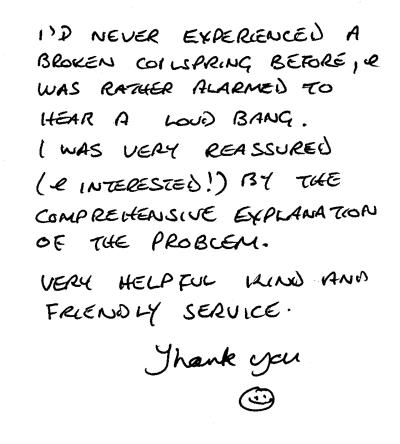 I'D NEVER EXPERIENCED A
BROKEN COILSPRING BEFORE, &
WAS RATHER ALARMED TO
HEAR A LOUD BANG.
I WAS VERY REASSURED
(& INTERESTED!) BY THE
COMPREHENSIVE EXPLANATION
OF THE PROBLEM.
VERY HELPFUL KIND AND
FRIENDLY SERVICE.
Thank you